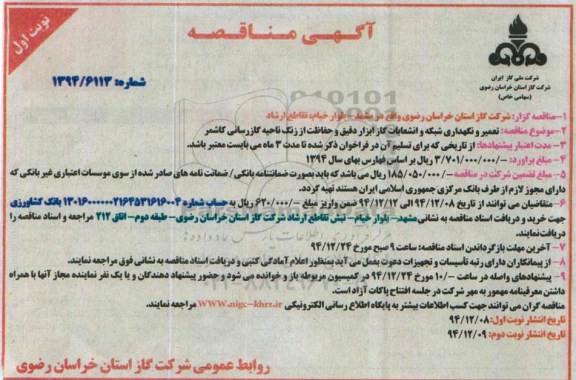 نوبت اول
آگهی مناقصه
شرکت ملی گاز ایران
شرکت گاز استان خراسان رضوی
(سهامی خاص)
شماره: ۱۳۹۴/۶۱۱۳
۱- مناقصه گزار: شرکت گاز استان خراسان رضوی واقع در مشهد- بلوار خیام، تقاطع ارشاد
۲- موضوع مناقصه: تعمیر و نگهداری شبکه و انشعابات گاز ابزار دقیق و حفاظت از زنگ ناحیه گازرسانی کاشمر
۳- مدت اعتبار پیشنهادها: از تاریخی که برای تسلیم آن در فراخوان ذکر شده تا مدت ۳ ماه می بایست معتبر باشد.
۴- مبلغ برآورد: ۳/۷۰۱/۰۰۰/۰۰۰/- ریال بر اساس فهارس بهای سال ۱۳۹۴
۵- مبلغ تضمین شرکت در مناقصه: ۱۸۵/۰۵۰/۰۰۰/- ریال می باشد که باید بصورت ضمانتنامه بانکی/ ضمانت نامه های صادر شده از سوی موسسات اعتباری غیر بانکی که
دارای مجوز لازم از طرف بانک مرکزی جمهوری اسلامی ایران هستند تهیه گردد.
۶- متقاضیان می توانند از تاریخ ۹۴/۱۲/۰۸ الی ۹۴/۱۲/۱۲ ضمن واریز مبلغ ۶۲۰/۰۰۰/- ریال به حساب شماره ۱۳۰۱۶۰۰۰۰۰۰۲۱۶۴۵۳۱۶۱۶۰۰۴ بانک کشاورزی
جهت خرید و دریافت اسناد مناقصه به نشانی مشهد- بلوار خیام- نبش تقاطع ارشاد شرکت گاز استان خراسان رضوی- طبقه دوم- اتاق ۲۱۲ مراجعه و اسناد مناقصه را
دریافت نمایند.
۷- آخرین مهلت بازگرداندن اسناد مناقصه: ساعت ۹ صبح مورخ ۹۴/۱۲/۲۴
۸- از پیمانکاران دارای رتبه تأسیسات و تجهیزات دعوت بعمل می آید بمنظور اعلام آمادگی کتبی و دریافت اسناد مناقصه به نشانی فوق مراجعه نمایند.
۹- پیشنهادهای واصله در ساعت ۱۰/۰۰ مورخ ۹۴/۱۲/۲۴ در کمیسیون مربوطه باز و خوانده می شود و حضور پیشنهاد دهندگان و یا یک نفر نماینده مجاز آنها با همراه
داشتن معرفینامه ممهور به مهر شرکت در جلسه افتتاح پاکات آزاد است.
مناقصه گران می توانند جهت کسب اطلاعات بیشتر به پایگاه اطلاع رسانی الکترونیکی WWW.nigc-khrz.ir مراجعه نمایند.
تاریخ انتشار نوبت اول: ۹۴/۱۲/۰۸
تاریخ انتشار نوبت دوم: ۹۴/۱۲/۰۹
روابط عمومی شرکت گاز استان خراسان رضوی